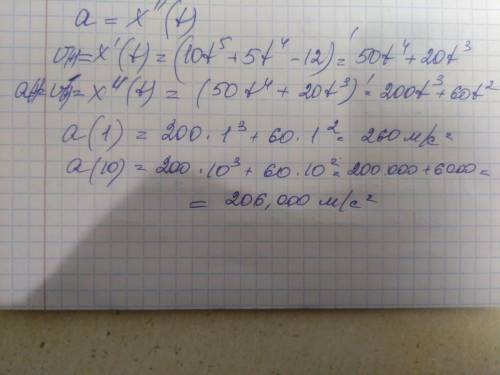 a = x''(t)
v(t)=x'(t) = (10t⁵ + 5t⁴ - 12)' = 50t⁴ + 20t³
= x''(t) = (50t⁴ + 20t³)' = 200t³ + 60t²
a(1) = 200 · 1³ + 60 · 1² = 260 м/с²
a(10) = 200 · 10³ + 60 · 10² = 200.000 + 6000 =
= 206,000 м/с²